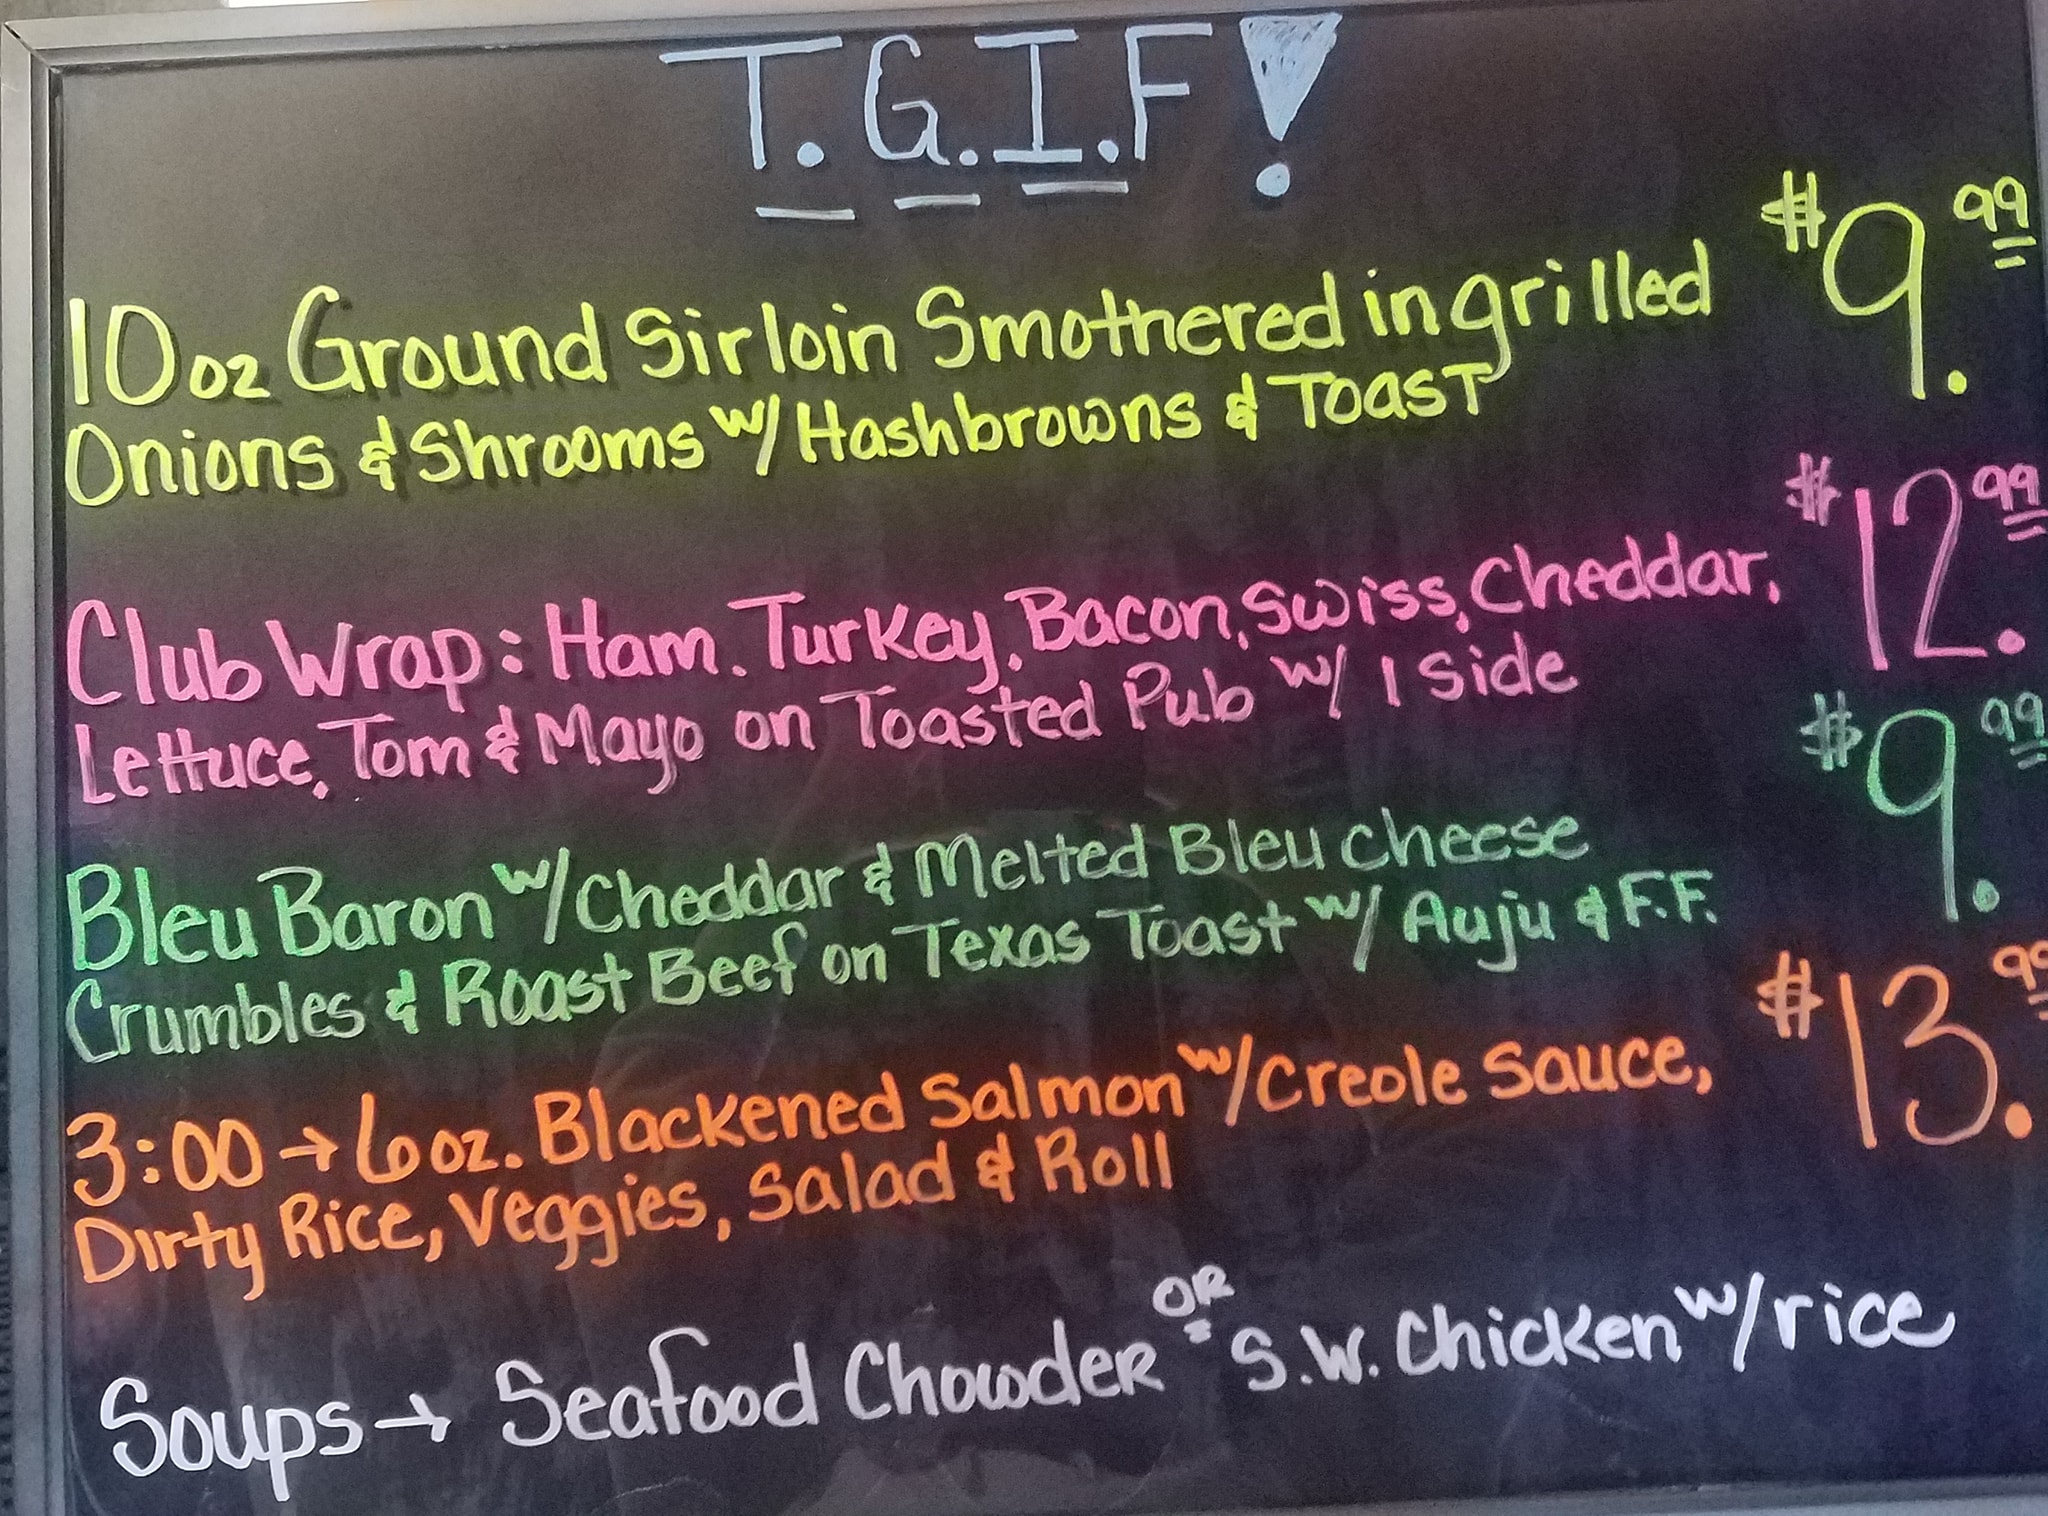 T.G.I.F!
10oz Ground Sirloin Smothered in grilled $9.99
Onions & Shrooms w/ Hashbrowns & Toast
Club Wrap: Ham, Turkey, Bacon, Swiss, Cheddar, $12.99
Lettuce, Tom & Mayo on Toasted Pub w/ 1 Side
Bleu Baron w/ Cheddar & Melted Bleu Cheese $9.99
Crumbles & Roast Beef on Texas Toast w/ Auju & F.F.
3:00 → 6oz. Blackened Salmon w/ Creole Sauce, $13.99
Dirty Rice, Veggies, Salad & Roll
Soups → Seafood Chowder OR S.W. Chicken w/ rice